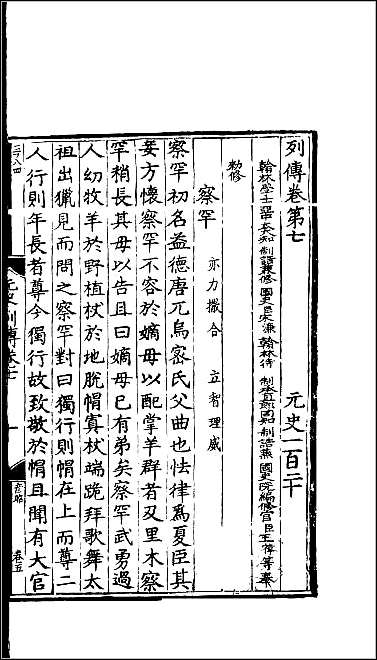 列傳卷第七 元史一百二十
翰林學士亞中大夫知制誥兼修國史臣宋濂翰林待制承直郎同知制誥兼國史院編修官臣王禕等奉
勑修
察罕 亦力撒合 立智理威
察罕初名益德唐兀烏密氏父曲也怯律為夏臣其
妾方懷察罕不容於嫡母以配掌羊群者及里木察
罕稍長其母以告且曰嫡母已有弟矣察罕武勇過
人幼牧羊於野植杖於地脫帽寘杖端跪拜歌舞太
祖出獵見而問之察罕對曰獨行則帽在上而尊二
人行則年長者尊今獨行故致敬於帽且聞有大官
元史列傳卷七
一